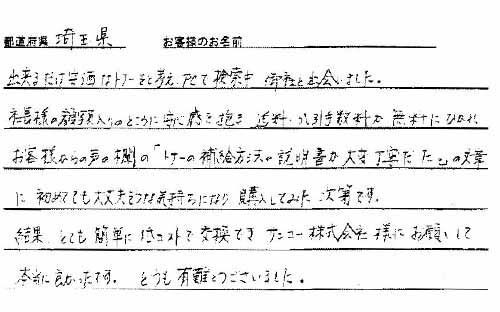 都道府県 埼玉県 お客様のお名前
出来るだけ安価なトナーをと考え、PCで検索中 御社と出会いました。
社長様の顔写真入りのところに安心感を抱き 送料・代引手数料が無料にひかれ
お客様からの声の欄の「トナーの補給方法の説明書が大変丁寧だった」の文章
に 初めてでも大丈夫そうな気持ちになり 購入してみた次第です。
結果、とても簡単に低コストで交換でき アンコー株式会社様にお願いして
本当に良かったです。どうも有難とうございました。